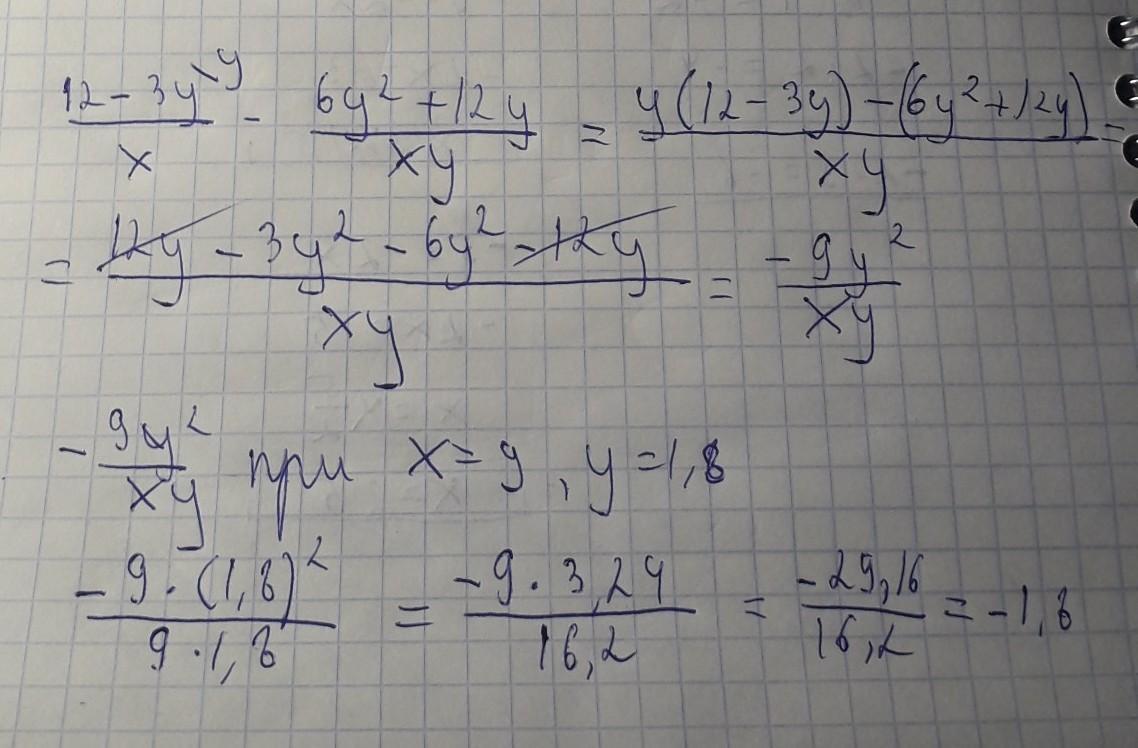 (12 - 3y)/x \y - (6y² + 12y)/(xy) = (y(12 - 3y) - (6y² + 12y))/(xy) =
= (12y - 3y² - 6y² - 12y)/(xy) = (-9y²)/(xy)
- 9y²/(xy) при x = 9, y = 1,8
(-9 · (1,8)²)/(9 · 1,8) = (-9 · 3,24)/(16,2) = (-29,16)/(16,2) = -1,8